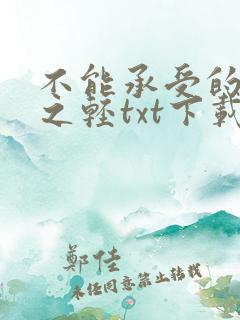 不能承受的
之轻txt下載
鄭佳
未任同意禁止转载